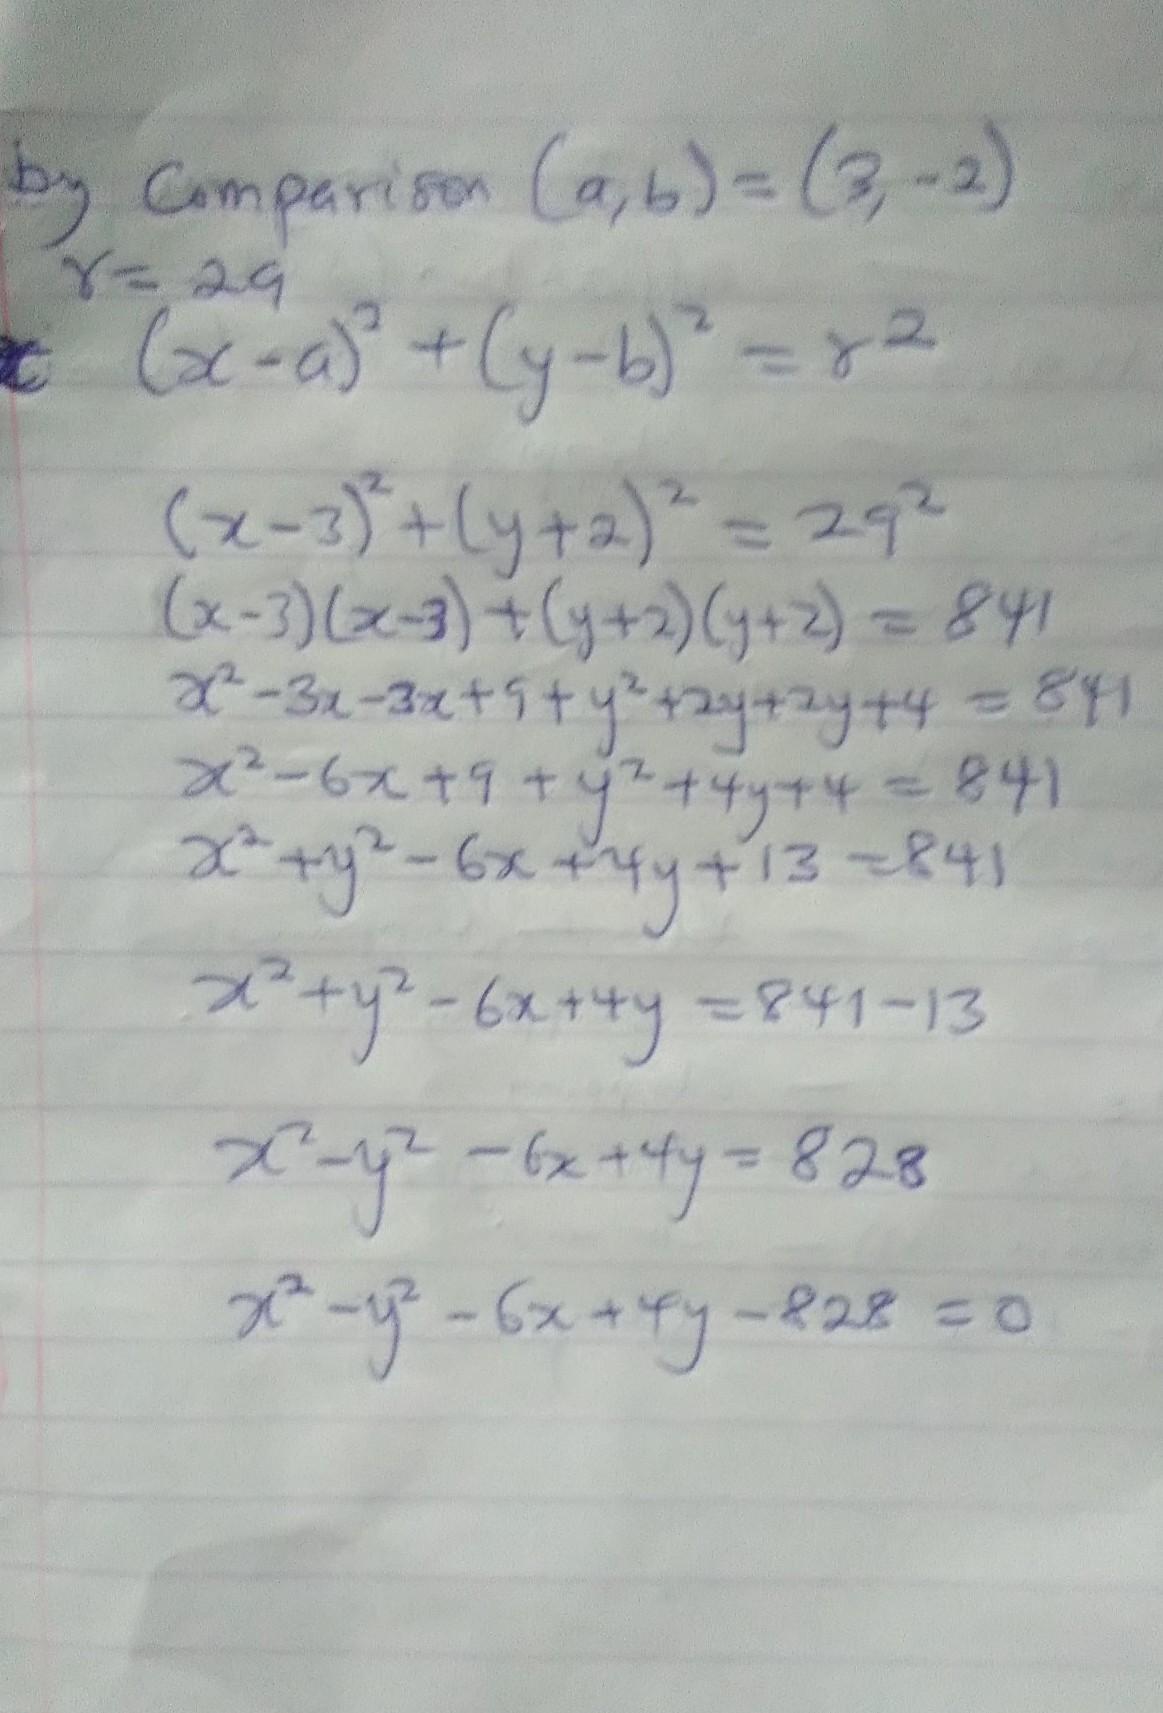 by Comparison (a,b) = (3,-2)
r = 29
(x-a)² + (y-b)² = r²
(x-3)² + (y+2)² = 29²
(x-3)(x-3) + (y+2)(y+2) = 841
x² - 3x - 3x + 9 + y² + 2y + 2y + 4 = 841
x² - 6x + 9 + y² + 4y + 4 = 841
x² + y² - 6x + 4y + 13 = 841
x² + y² - 6x + 4y = 841 - 13
x² - y² - 6x + 4y = 828
x² - y² - 6x + 4y - 828 = 0